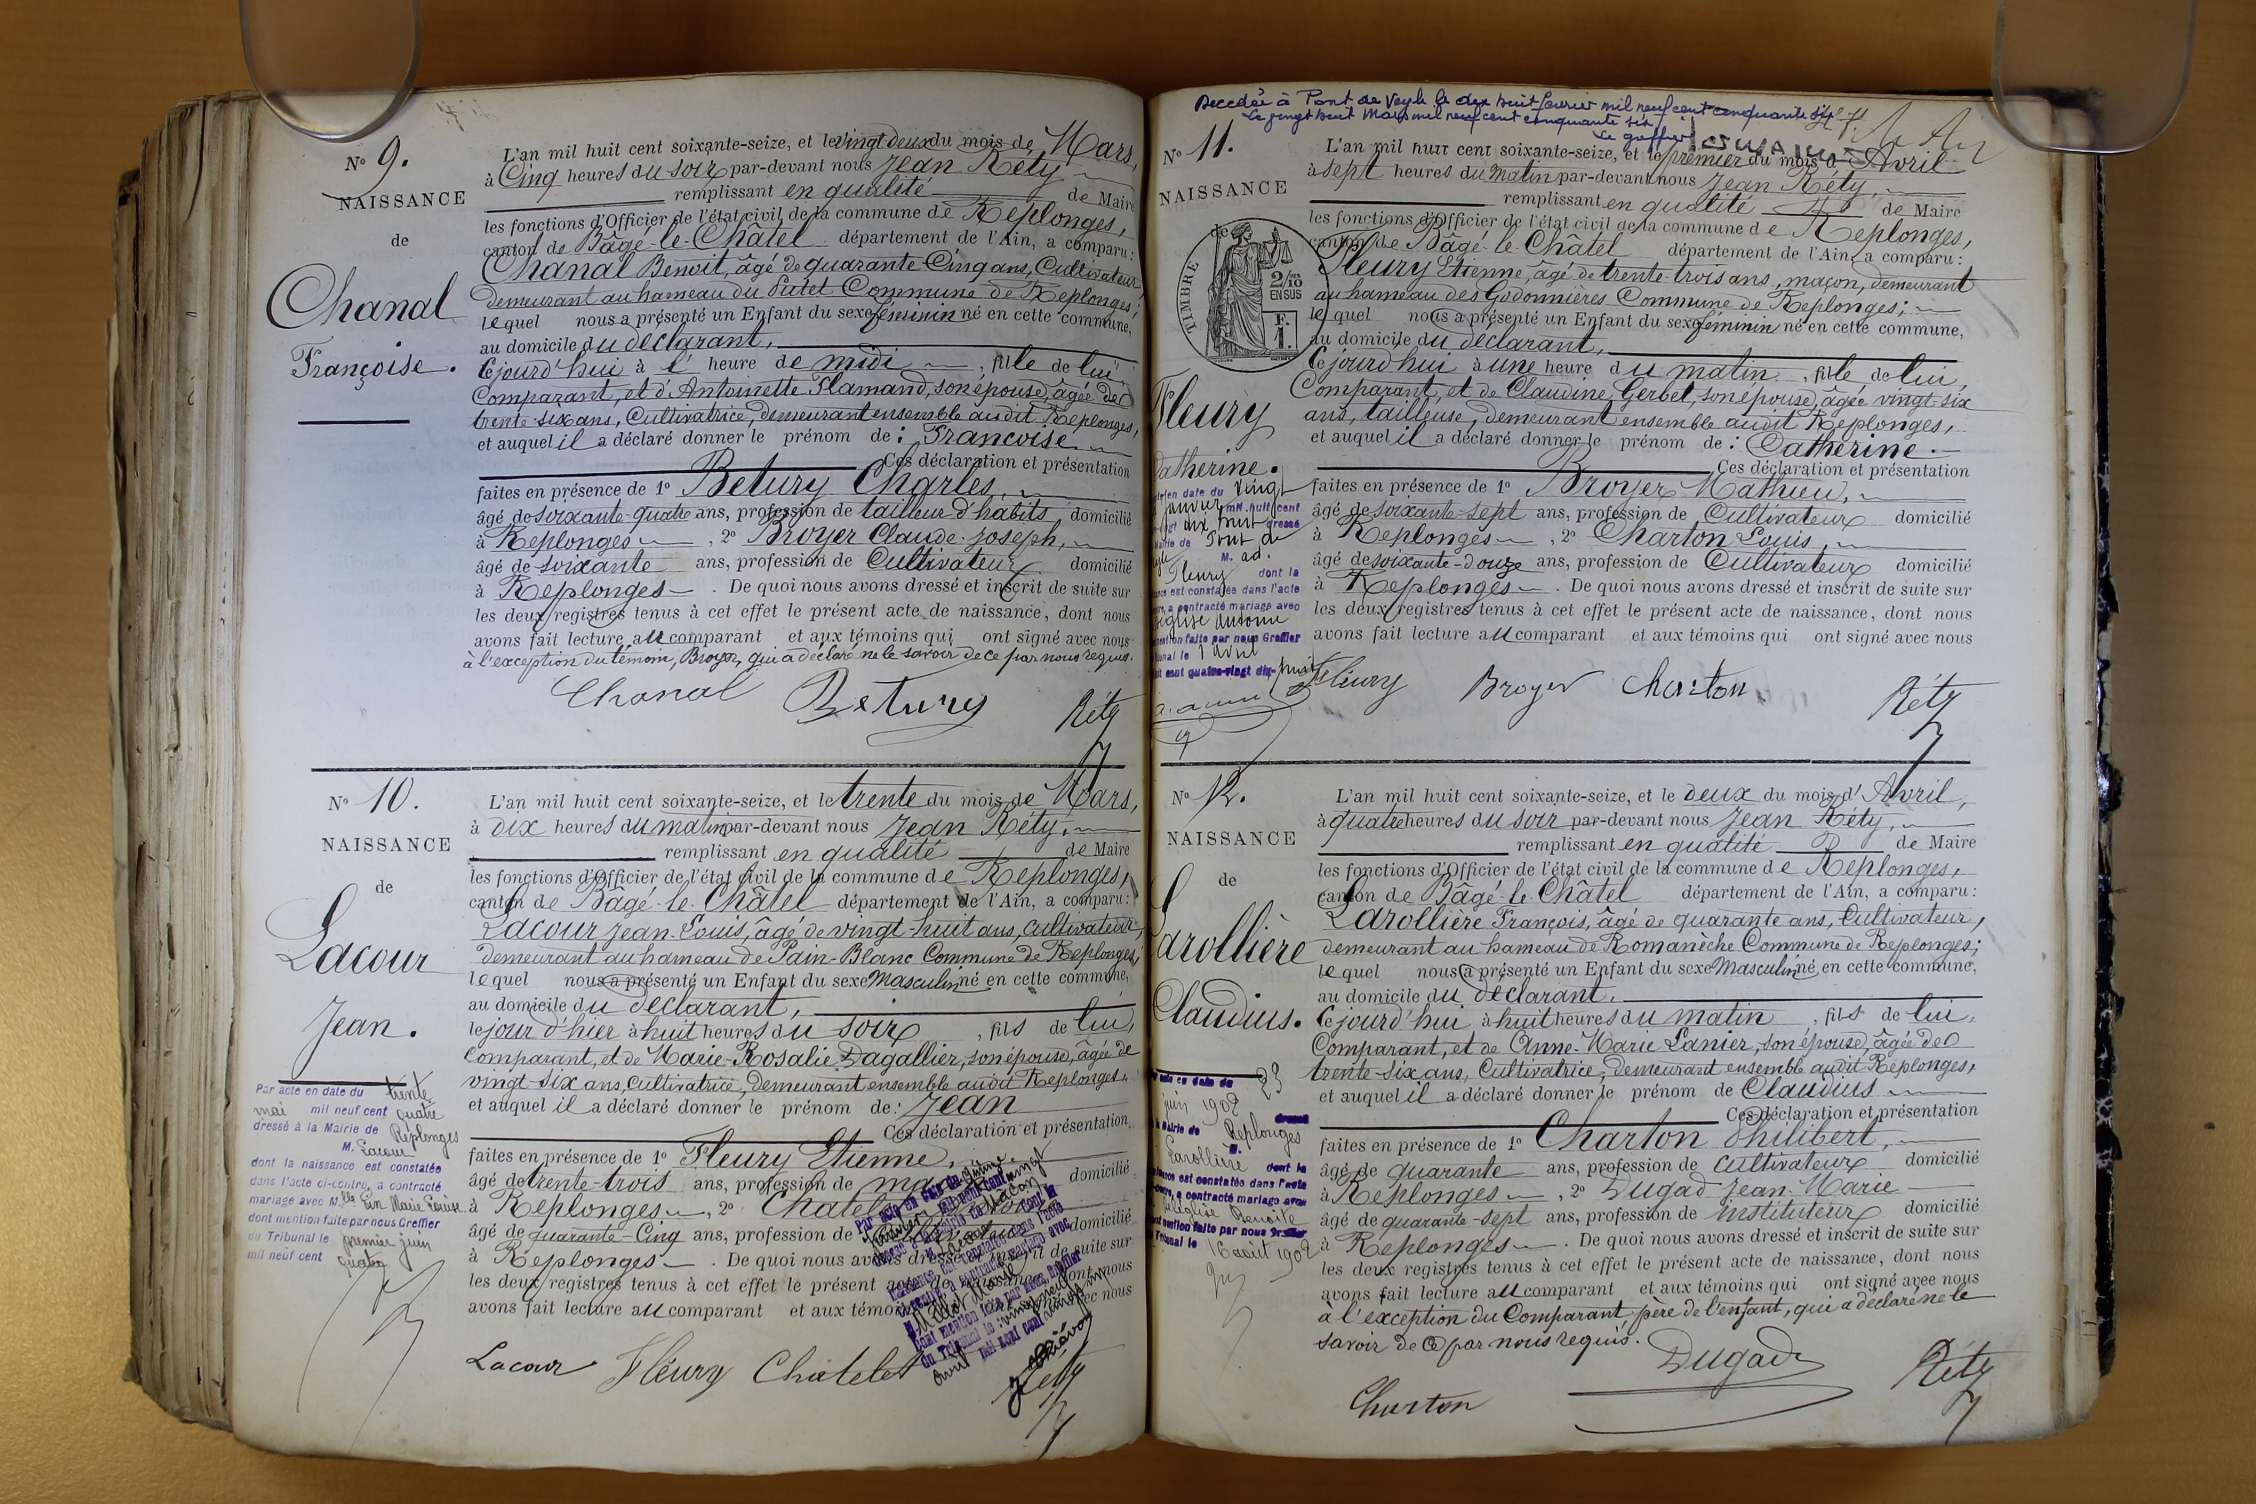 No 9.
NAISSANCE
de
Chanal
Françoise.
L'an mil huit cent soixante-seize, et le vingt deux du mois de Mars,
à Cinq heures du soir par-devant nous Jean Réty
remplissant en qualité de Maire
les fonctions d'Officier de l'état civil de la commune de Replonges,
canton de Bâgé-le-Châtel département de l'Ain, a comparu:
Chanal Benoit, âgé de quarante Cinq ans, Cultivateur
demeurant au hameau du Putet Commune de Replonges,
lequel nous a présenté un Enfant du sexe féminin né en cette commune,
au domicile du déclarant,
Cejourd'hui à l' heure de midi, fille de lui
Comparant, et d'Antoinette Flamand, son épouse, âgée de
trente-six ans, Cultivatrice, demeurant ensemble audit Replonges,
et auquel il a déclaré donner le prénom de: Françoise
Ces déclaration et présentation
faites en présence de 1o Betury Charles,
âgé de soixante-quatre ans, profession de tailleur d'habits domicilié
à Replonges, 2o Broyer Claude-Joseph,
âgé de soixante ans, profession de Cultivateur domicilié
à Replonges. De quoi nous avons dressé et inscrit de suite sur
les deux registres tenus à cet effet le présent acte de naissance, dont nous
avons fait lecture au comparant et aux témoins qui ont signé avec nous
à l'exception du témoin, Broyer, qui a déclaré ne le savoir de ce par nous requis.
Chanal Betury Réty
No 10.
NAISSANCE
de
Lacour
Jean.
Par acte en date du trente
mai mil neuf cent quatre
dressé à la Mairie de Replonges
M. Lacour
dont la naissance est constatée
dans l'acte ci-contre, a contracté
mariage avec Mlle Marie Louise
dont mention faite par nous Greffier
du Tribunal le premier juin
mil neuf cent quatre
L'an mil huit cent soixante-seize, et le trente du mois de Mars,
à dix heures du matin par-devant nous Jean Réty,
remplissant en qualité de Maire
les fonctions d'Officier de l'état civil de la commune de Replonges,
canton de Bâgé-le-Châtel département de l'Ain, a comparu:
Lacour Jean-Louis, âgé de vingt-huit ans, cultivateur
demeurant au hameau de Pain-Blanc Commune de Replonges,
lequel nous a présenté un Enfant du sexe Masculin né en cette commune,
au domicile du déclarant,
le jour d'hier à huit heures du soir, fils de lui,
Comparant, et de Marie-Rosalie Dagallier, son épouse, âgée de
vingt-six ans, Cultivatrice, demeurant ensemble audit Replonges,
et auquel il a déclaré donner le prénom de: Jean
Ces déclaration et présentation
faites en présence de 1o Fleury Etienne,
âgé de trente-trois ans, profession de domicilié
à Replonges, 2o
âgé de quarante-Cinq ans, profession de domicilié
à Replonges. De quoi nous avons dressé et inscrit de suite sur
les deux registres tenus à cet effet le présent acte de naissance, dont nous
avons fait lecture au comparant et aux témoins avec nous
Lacour Fleury Chatelet Réty
Décédée à Pont de Veyle le dix huit février mil neuf cent cinquante six
Le vingt huit Mars mil neuf cent cinquante six
Le greffier
No 11.
NAISSANCE
de
TIMBRE
2/10
EN SUS
F.
1.
Fleury
Catherine.
en date du vingt
janvier mil huit cent
dix huit dressé
Mairie de Pont de
M. ad.
Fleury dont la
est constatée dans l'acte
a contracté mariage avec
mention faite par nous Greffier
1 avril
cent quatre-vingt dix-huit
L'an mil huit cent soixante-seize, et le premier du mois d'Avril
à sept heures du matin par-devant nous Jean Réty,
remplissant en qualité de Maire
les fonctions d'Officier de l'état civil de la commune de Replonges,
canton de Bâgé-le-Châtel département de l'Ain, a comparu:
Fleury Etienne, âgé de trente-trois ans, maçon, demeurant
au hameau des Godonnières Commune de Replonges;
lequel nous a présenté un Enfant du sexe féminin né en cette commune,
au domicile du déclarant,
Cejourd'hui à une heure du matin, fille de lui,
Comparant, et de Claudine Gerbet, son épouse, âgée vingt-six
ans, tailleuse, demeurant ensemble audit Replonges,
et auquel il a déclaré donner le prénom de: Catherine
Ces déclaration et présentation
faites en présence de 1o Broyer Mathieu,
âgé de soixante-sept ans, profession de Cultivateur domicilié
à Replonges, 2o Charton Louis,
âgé de soixante-douze ans, profession de Cultivateur domicilié
à Replonges. De quoi nous avons dressé et inscrit de suite sur
les deux registres tenus à cet effet le présent acte de naissance, dont nous
avons fait lecture au comparant et aux témoins qui ont signé avec nous
Fleury Broyer Charton Réty
No 12.
NAISSANCE
de
Larollière
Claudius.
23
juin 1902 dressé
Mairie de Replonges
M.
Larollière dont la
naissance est constatée dans l'acte
a contracté mariage avec
Benoite
mention faite par nous Greffier
Tribunal le 16 août 1902
L'an mil huit cent soixante-seize, et le deux du mois d'Avril,
à quatre heures du soir par-devant nous Jean Réty,
remplissant en qualité de Maire
les fonctions d'Officier de l'état civil de la commune de Replonges,
canton de Bâgé-le-Châtel département de l'Ain, a comparu:
Larollière François, âgé de quarante ans, Cultivateur,
demeurant au hameau de Romanèche Commune de Replonges;
lequel nous a présenté un Enfant du sexe Masculin né en cette commune,
au domicile du déclarant,
Cejourd'hui à huit heures du matin, fils de lui,
Comparant, et de Anne-Marie Lanier, son épouse, âgée de
trente-six ans, Cultivatrice, demeurant ensemble audit Replonges,
et auquel il a déclaré donner le prénom de Claudius
Ces déclaration et présentation
faites en présence de 1o Charton Philibert,
âgé de quarante ans, profession de cultivateur domicilié
à Replonges, 2o Dugad Jean-Marie
âgé de quarante-sept ans, profession de instituteur domicilié
à Replonges. De quoi nous avons dressé et inscrit de suite sur
les deux registres tenus à cet effet le présent acte de naissance, dont nous
avons fait lecture au comparant et aux témoins qui ont signé avec nous
à l'exception du Comparant, père de l'enfant, qui a déclaré ne le
savoir de ce par nous requis.
Charton Dugad Réty